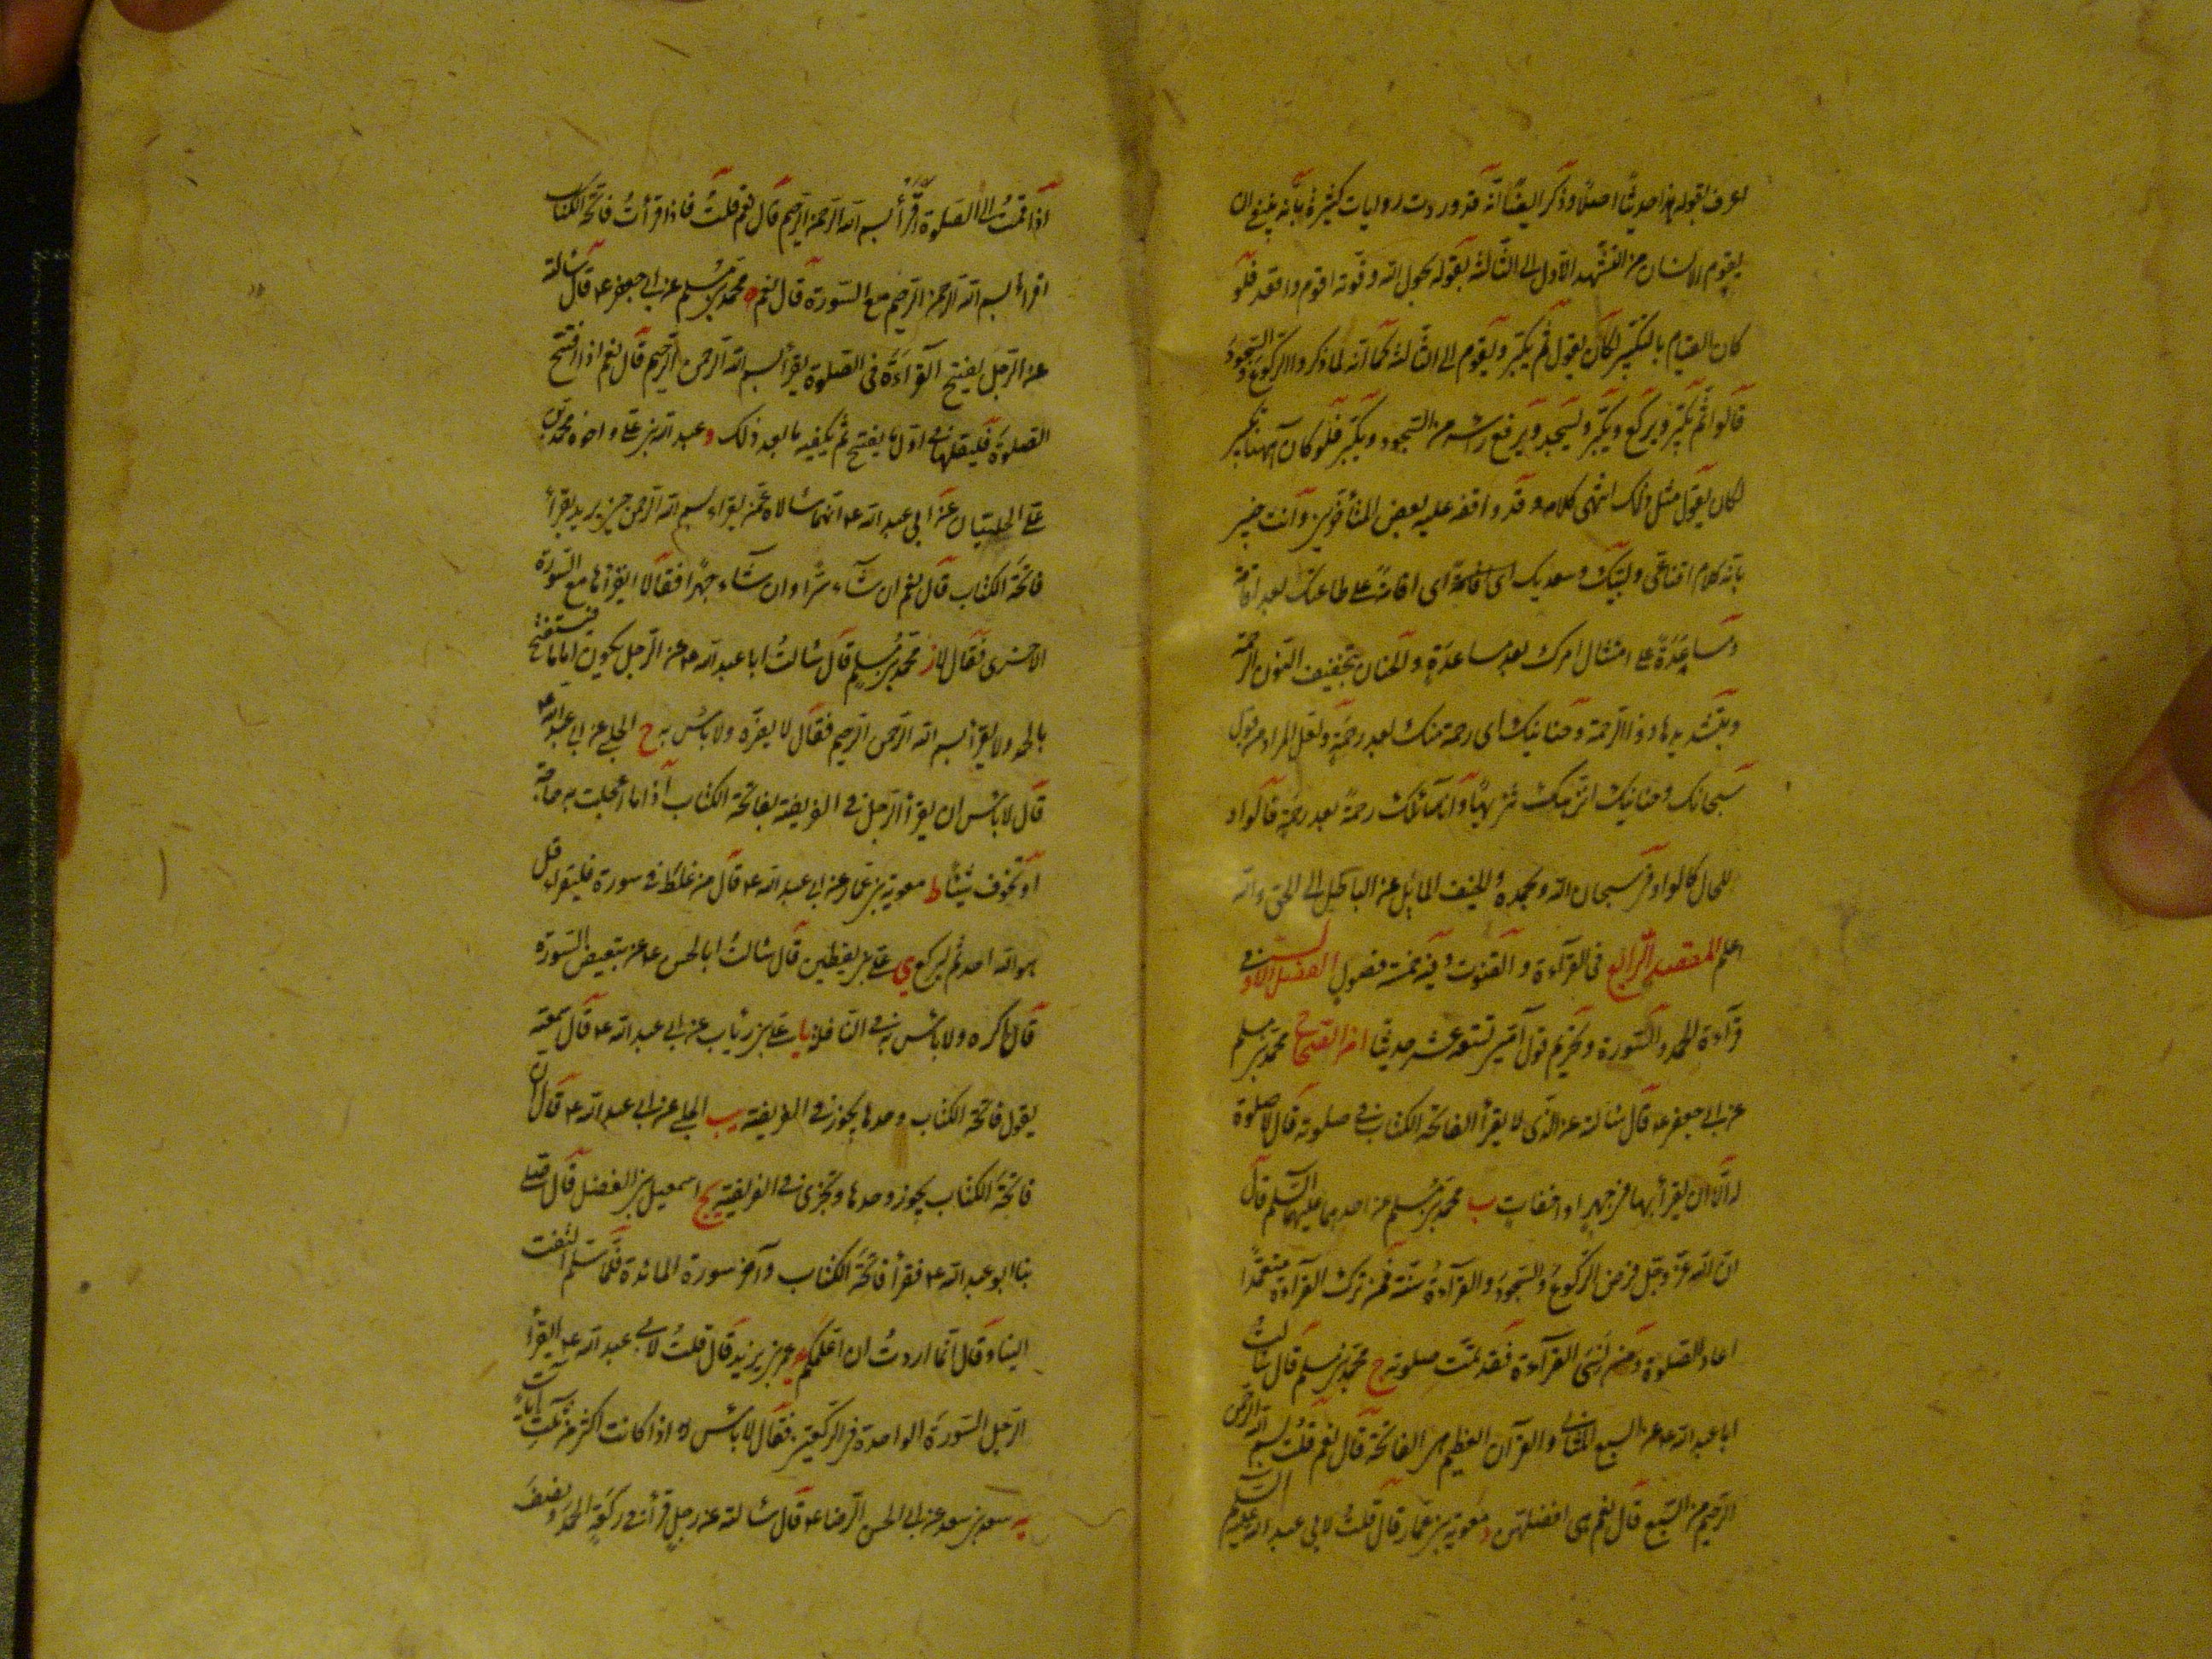 اعرف بقوله هذا حديثا اصلا وذكر ايضا انه قد وردت روايات كثيرة بانه ينبغي ان
يقوم الانسان من التشهد الاول الى الثالثة بقوله بحول الله وقوته اقوم واقعد فلو
كان القيام بالتكبير لكان يقول ثم يكبر ويقوم الى الثالثة كما انه لما ذكروا الركوع والسجود
قالوا ثم يكبر ويركع ويكبر ويسجد ويرفع راسه من السجود ويكبر فلو كان ههنا تكبير
لكان يقول مثل ذلك انتهى كلامه وقد وافقه عليه بعض المتأخرين وانت خبير
بانه كلام اقناعي ولبيك وسعديك اى اقامة على طاعتك بعد اقامة
ومساعدة على امتثال امرك بعد مساعدة والحنان بتخفيف النون الرحمة
وبتشديدها ذو الرحمة وحنانيك اى رحمة منك بعد رحمة ولعل المراد من قول
سبحانك وحنانيك انزهك تنزيها وانا سائلك رحمة بعد رحمة فالواو
للحال كالواو في سبحان الله وبحمده والحنيف المائل عن الباطل الى الحق والله
اعلم المقصد الرابع في القراءة والقنوت وفيه خمسة فصول الفصل الاول في
قراءة الحمد والسورة وتحريم قول آمين تسعة عشر حديثا ا من الصحاح محمد بن مسلم
عن ابي جعفر ع قال سالته عن الذى لا يقرأ الفاتحة الكتاب في صلوته قال لا صلوة
له الا ان يقرأ بها في جهر او اخفات ب محمد بن مسلم عن احدهما عليهما السلم قال
ان الله عز وجل فرض الركوع والسجود والقراءة سنة فمن ترك القراءة متعمدا
اعاد الصلوة ومن نسى القراءة فقد تمت صلوته ج محمد بن مسلم قال سالت
ابا عبد الله ع عن السبع المثاني والقرآن العظيم هى الفاتحة قال نعم قلت بسم الله الرحمن
الرحيم من السبع قال نعم هى افضلهن د معوية بن عمار قال قلت لابي عبد الله عليه السلم
اذا قمت الى الصلوة اقرأ بسم الله الرحمن الرحيم قال نعم قلت فاذا قرأت فاتحة الكتاب
اقرأ بسم الله الرحمن الرحيم مع السورة قال نعم ه محمد بن مسلم عن ابي جعفر ع قال سالته
عن الرجل يفتتح القراءة في الصلوة يقرأ بسم الله الرحمن الرحيم قال نعم اذا افتتح
الصلوة فليقلها في اول ما يفتتح ثم يكفيه ما بعد ذلك و عبد الله بن على واخوه محمد بن
على الحلبيان عن ابي عبد الله ع انهما سالاه عمن يقرأ بسم الله الرحمن حين يريد يقرأ
فاتحة الكتاب قال نعم ان شاء سرا وان شاء جهرا فقالا ايقرأها مع السورة
الاخرى فقال لا ز محمد بن مسلم قال سالت ابا عبد الله ع عن الرجل يكون اماما فيستفتح
بالحمد ولا يقرأ بسم الله الرحمن الرحيم فقال لا يضره ولا باس به ح الحلبي عن ابي عبد الله ع
قال لا باس ان يقرأ الرجل في الفريضة بفاتحة الكتاب اذا ما اعجلت به حاجة
او تخوف شيئا ط معوية بن عمار عن ابي عبد الله ع قال من غلط في سورة فليقرأ قل
هو الله احد ثم ليركع ي على بن يقطين قال سالت ابا الحسن ع عن تبعيض السورة
قال اكره ولا باس به في النافلة يا على بن رئاب عن ابي عبد الله ع قال سمعته
يقول فاتحة الكتاب وحدها يجوز في الفريضة يب الحلبي عن ابي عبد الله ع قال ان
فاتحة الكتاب يجوز وحدها وتجزى في الفريضة يج اسمعيل بن الفضل قال صلى
بنا ابو عبد الله ع فقرأ فاتحة الكتاب وآخر سورة المائدة فلما سلم التفت
الينا وقال انما اردت ان اعلمكم يد عمر بن يزيد قال قلت لابي عبد الله ع ايقرأ
الرجل السورة الواحدة في الركعتين فقال لا باس اذا كانت اكثر من ثلث آيات
يه سعد بن سعد عن ابي الحسن الرضا ع قال سالته عن رجل قرأ في ركعة الحمد ونصف